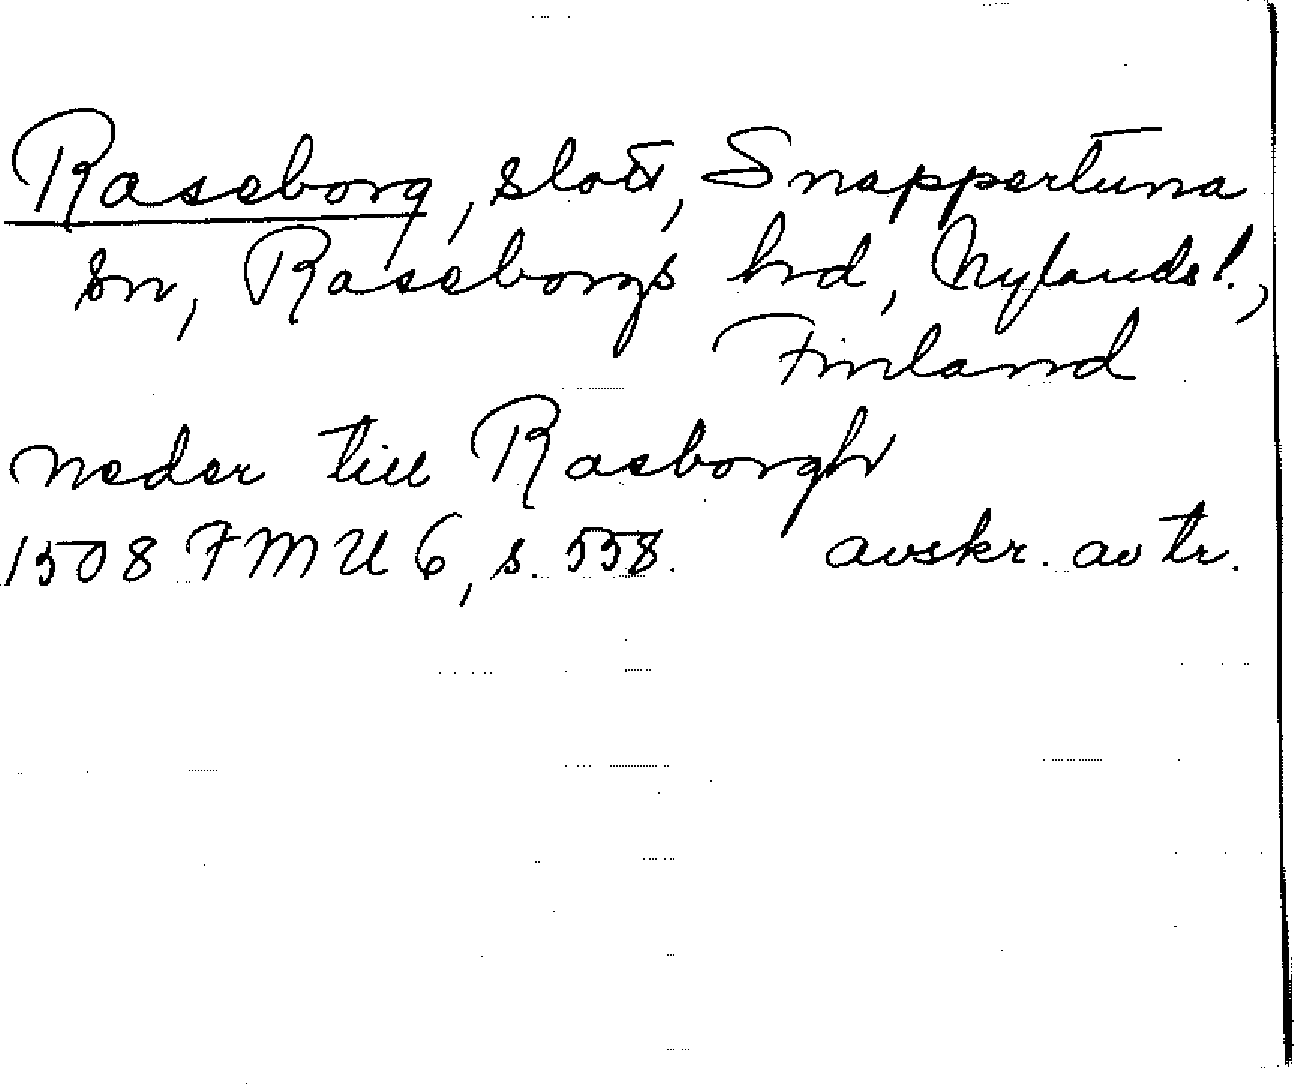 Raseborg, slott, Snappertuna
sn, Raseborgs hrd, Nylands l.,
Finland
neder till Rasborgh
1508 FMU 6, s. 558. avskr. av tr.